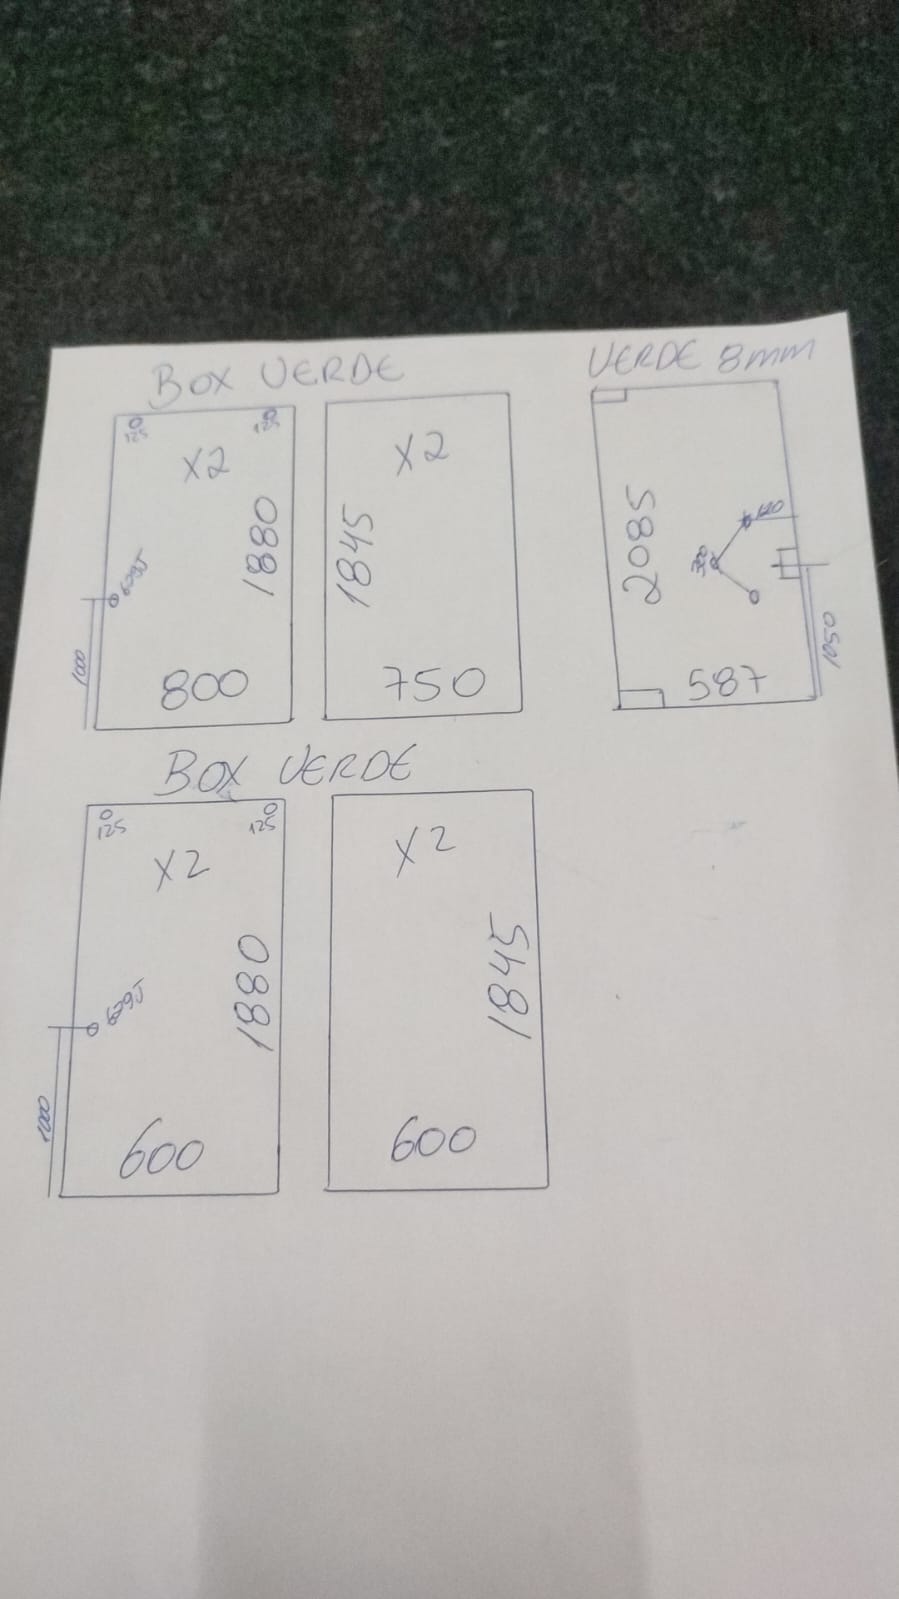 BOX VERDE
125
125
X2
1880
1000
800
X2
1845
750
VERDE 8mm
2085
120
1050
587
BOX VERDE
125
125
X2
1880
1000
600
X2
1845
600